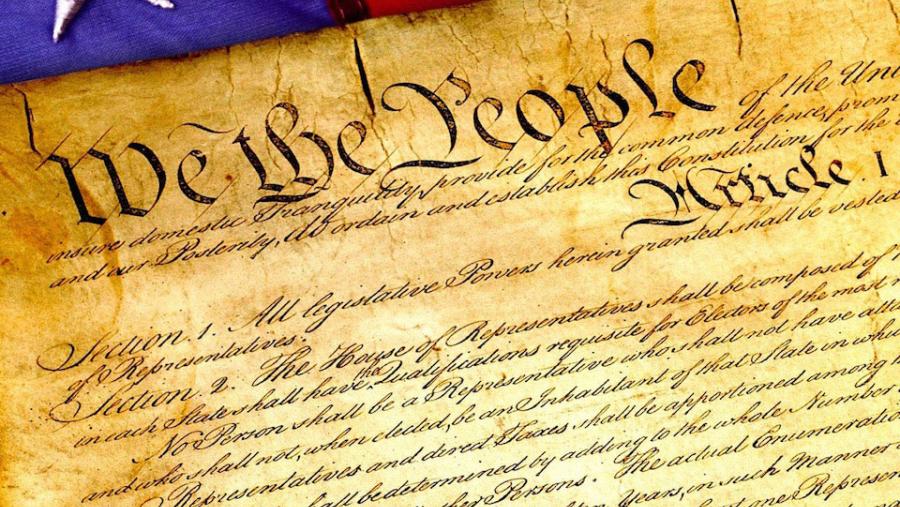 We the People of the Uni
insure domestic Tranquility, provide for the common defence, prom
and our Posterity, do ordain and establish this Constitution for the
Article. I
Section. 1. All legislative Powers herein granted shall be vested
of Representatives.
Section. 2. The House of Representatives shall be composed of
in each State shall have the Qualifications requisite for Electors of the most
No Person shall be a Representative who shall not have atta
and who shall not, when elected, be an Inhabitant of that State in wh
Representatives and direct Taxes shall be apportioned among
all be determined by adding to the whole Number
her Persons. The actual Enumeration
Years, in such Manner
one Represen